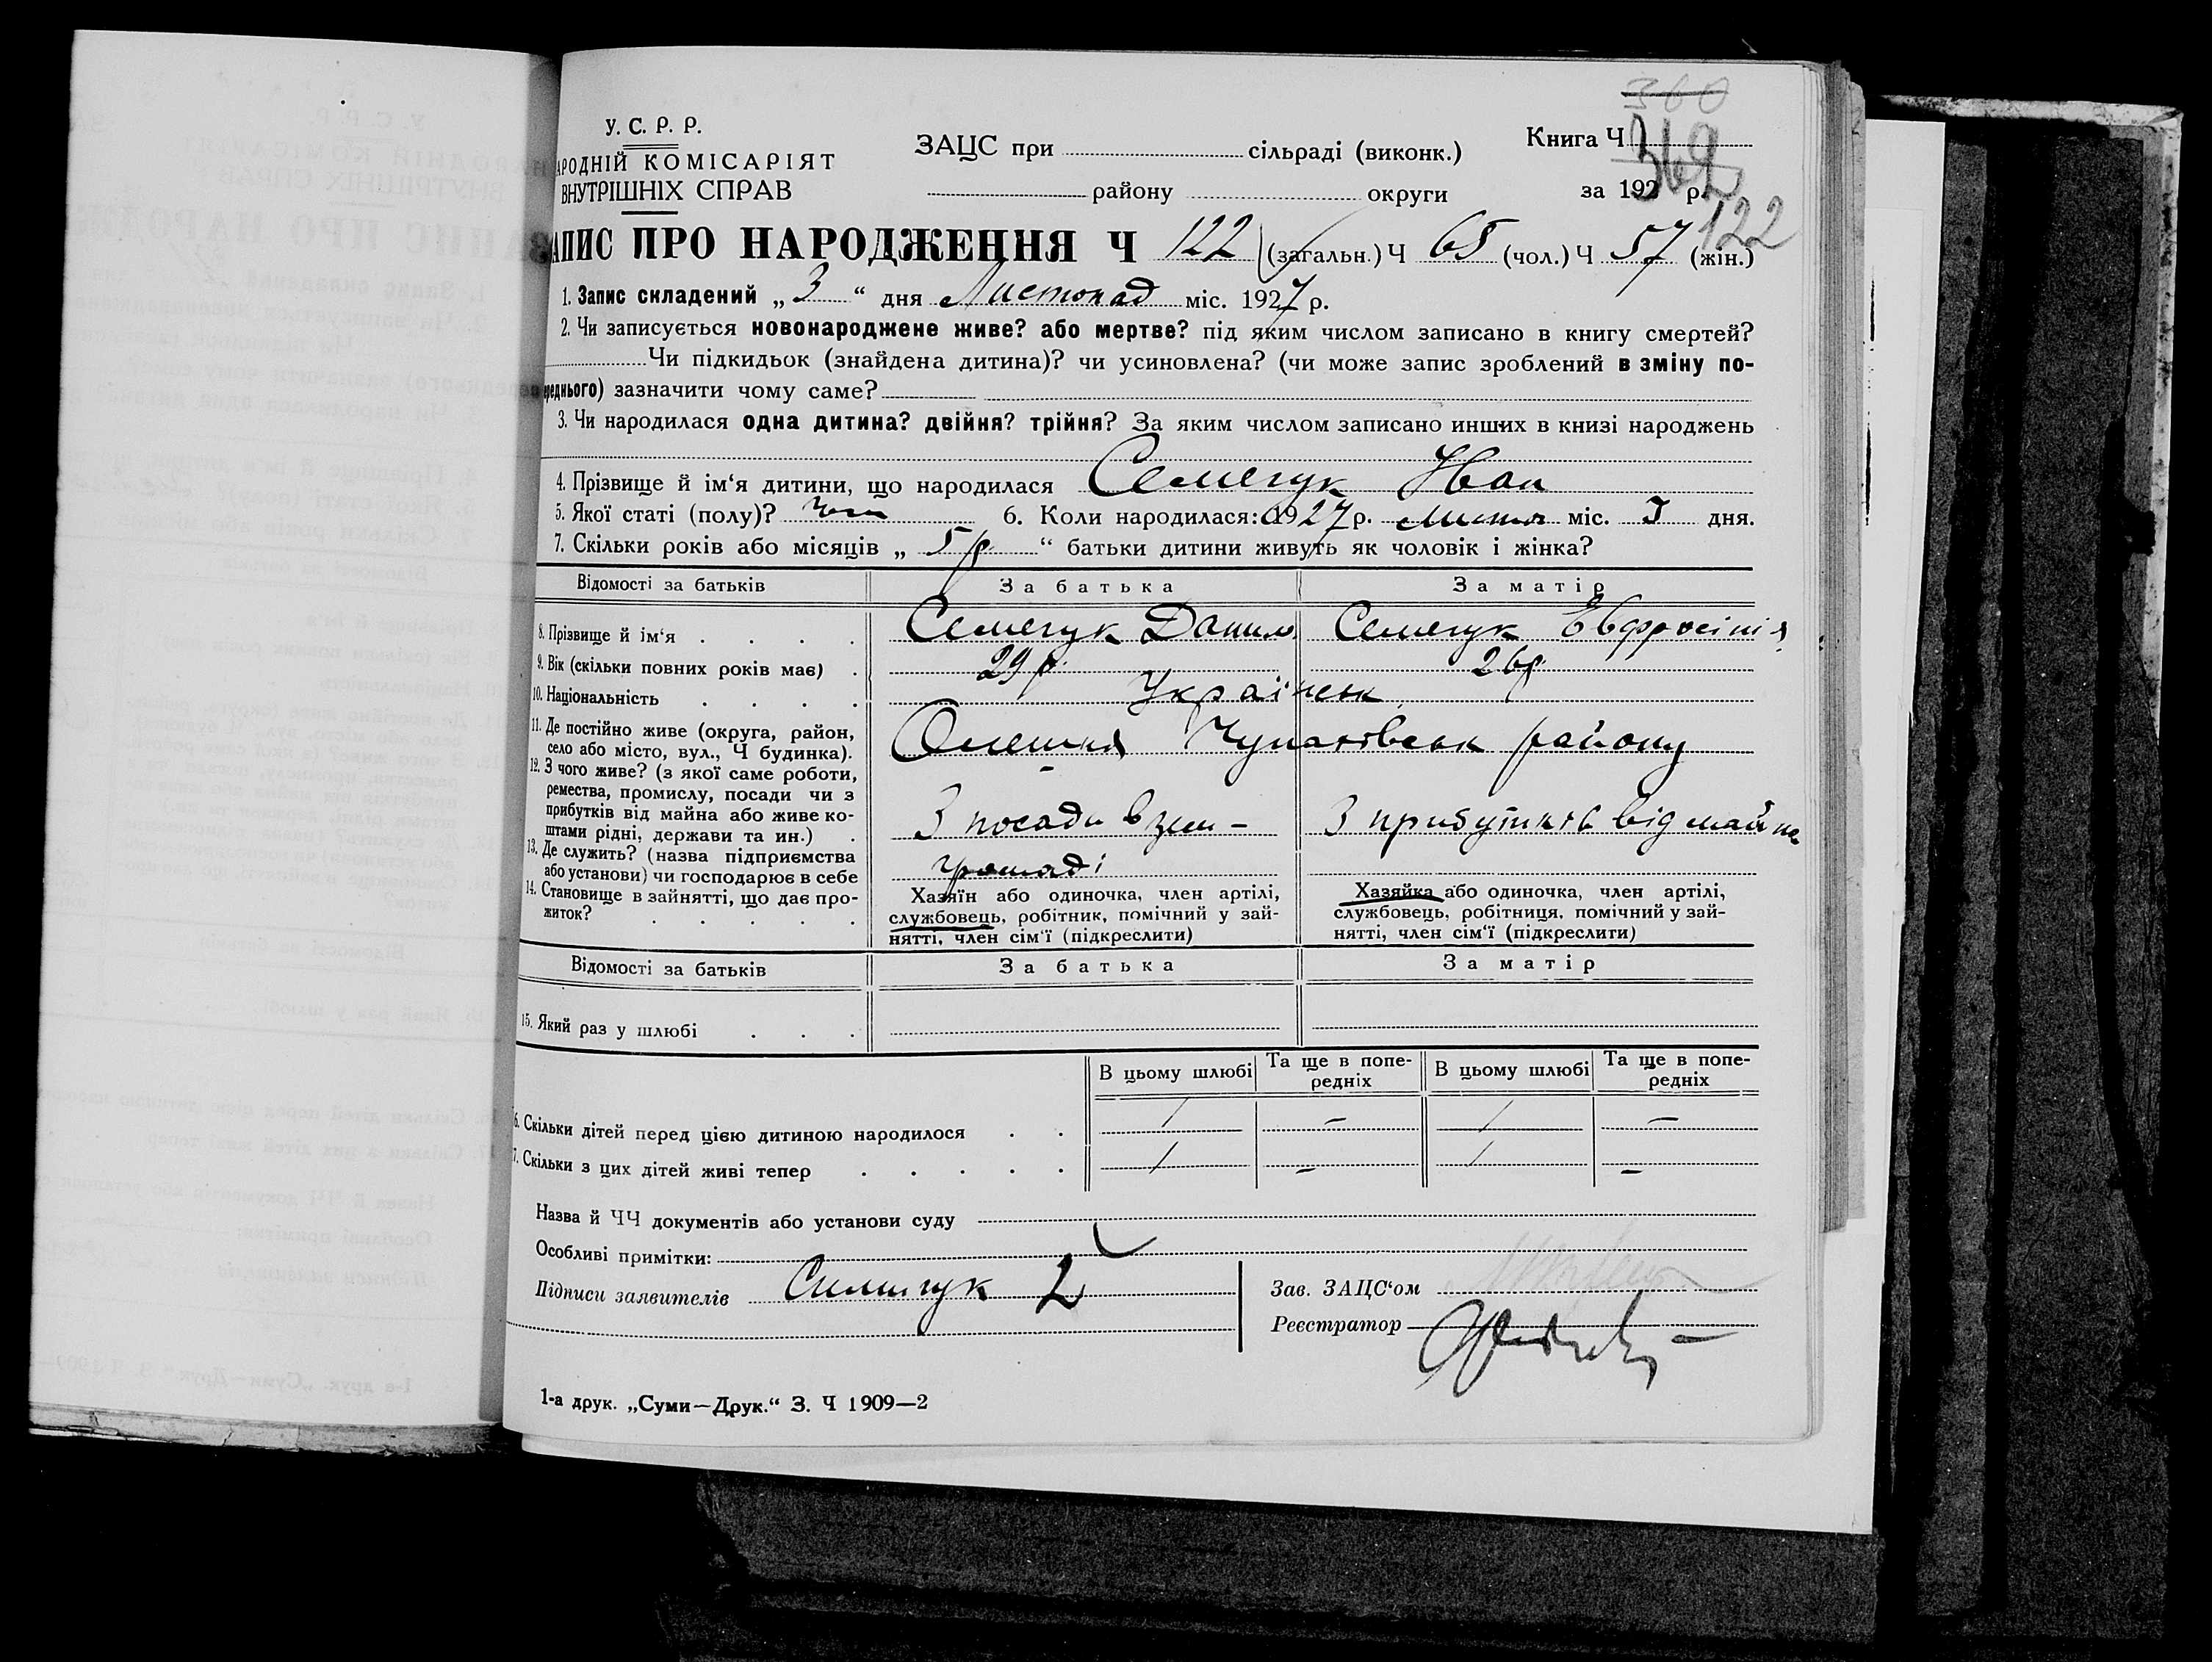 360
У. С. Р. Р.
АРОДНІЙ КОМІСАРІЯТ
ВНУТРІШНІХ СПРАВ
ЗАЦС при сільраді (виконк.)
району округи
Книга Ч 369
за 192 р.
122
АПИС ПРО НАРОДЖЕННЯ Ч 122 (загальн.) Ч 65 (чол.) Ч 57 (жін.)
1. Запис складений „ 3 “ дня Листопад міс. 1927 р.
2. Чи записується новонароджене живе? або мертве? під яким числом записано в книгу смертей?
Чи підкидьок (знайдена дитина)? чи усиновлена? (чи може запис зроблений в зміну по-
ереднього) зазначити чому саме?
3. Чи народилася одна дитина? двійня? трійня? За яким числом записано инших в книзі народжень
4. Прізвище й ім‘я дитини, що народилася Семегук Иван
5. Якої статі (полу)? чол 6. Коли народилася: 1927 р. Листоп міс. 3 дня.
7. Скільки років або місяців „ 5 р. “ батьки дитини живуть як чоловік і жінка?
Відомості за батьків За батька За матір
8. Прізвище й ім‘я . . . . Семегук Данило Семегук Евфросінія
9. Вік (скільки повних років має) . 29 р. 26 р.
10. Національність . . . . Українськ
11. Де постійно живе (округа, район,
село або місто, вул., Ч будинка).
Олешня Чупахівськ району
12. З чого живе? (з якої саме роботи,
ремества, промислу, посади чи з
прибутків від майна або живе ко-
штами рідні, держави та ин.) .
З посади в зем - З прибутків від майна
13. Де служить? (назва підприємства
або установи) чи господарює в себе
громаді
14. Становище в зайнятті, що дає про-
житок? . . . . .
Хазяїн або одиночка, член артілі,
службовець, робітник, помічний у зай-
нятті, член сім‘ї (підкреслити)
Хазяйка або одиночка, член артілі,
службовець, робітниця, помічний у зай-
нятті, член сім‘ї (підкреслити)
Відомості за батьків За батька За матір
15. Який раз у шлюбі . . .
В цьому шлюбі Та ще в попе-
редніх В цьому шлюбі Та ще в попе-
редніх
6. Скільки дітей перед цією дитиною народилося . . 1 – 1 –
7. Скільки з цих дітей живі тепер . . . . . 1 – 1 –
Назва й ЧЧ документів або установи суду
Особливі примітки:
Підписи заявителів Симигук
Зав. ЗАЦС‘ом
Реєстратор
1-а друк. „Суми—Друк.“ З. Ч 1909—2